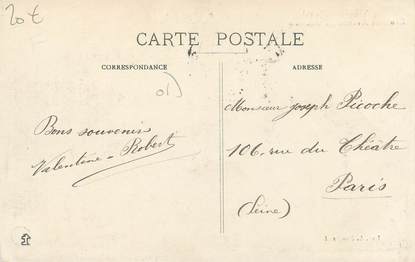 20€
CARTE POSTALE
CORRESPONDANCE
ADRESSE
01)
Monsieur joseph Picoche
Bons souvenirs
106, rue du Théâtre
Valentine - Robert
Paris
(Seine)